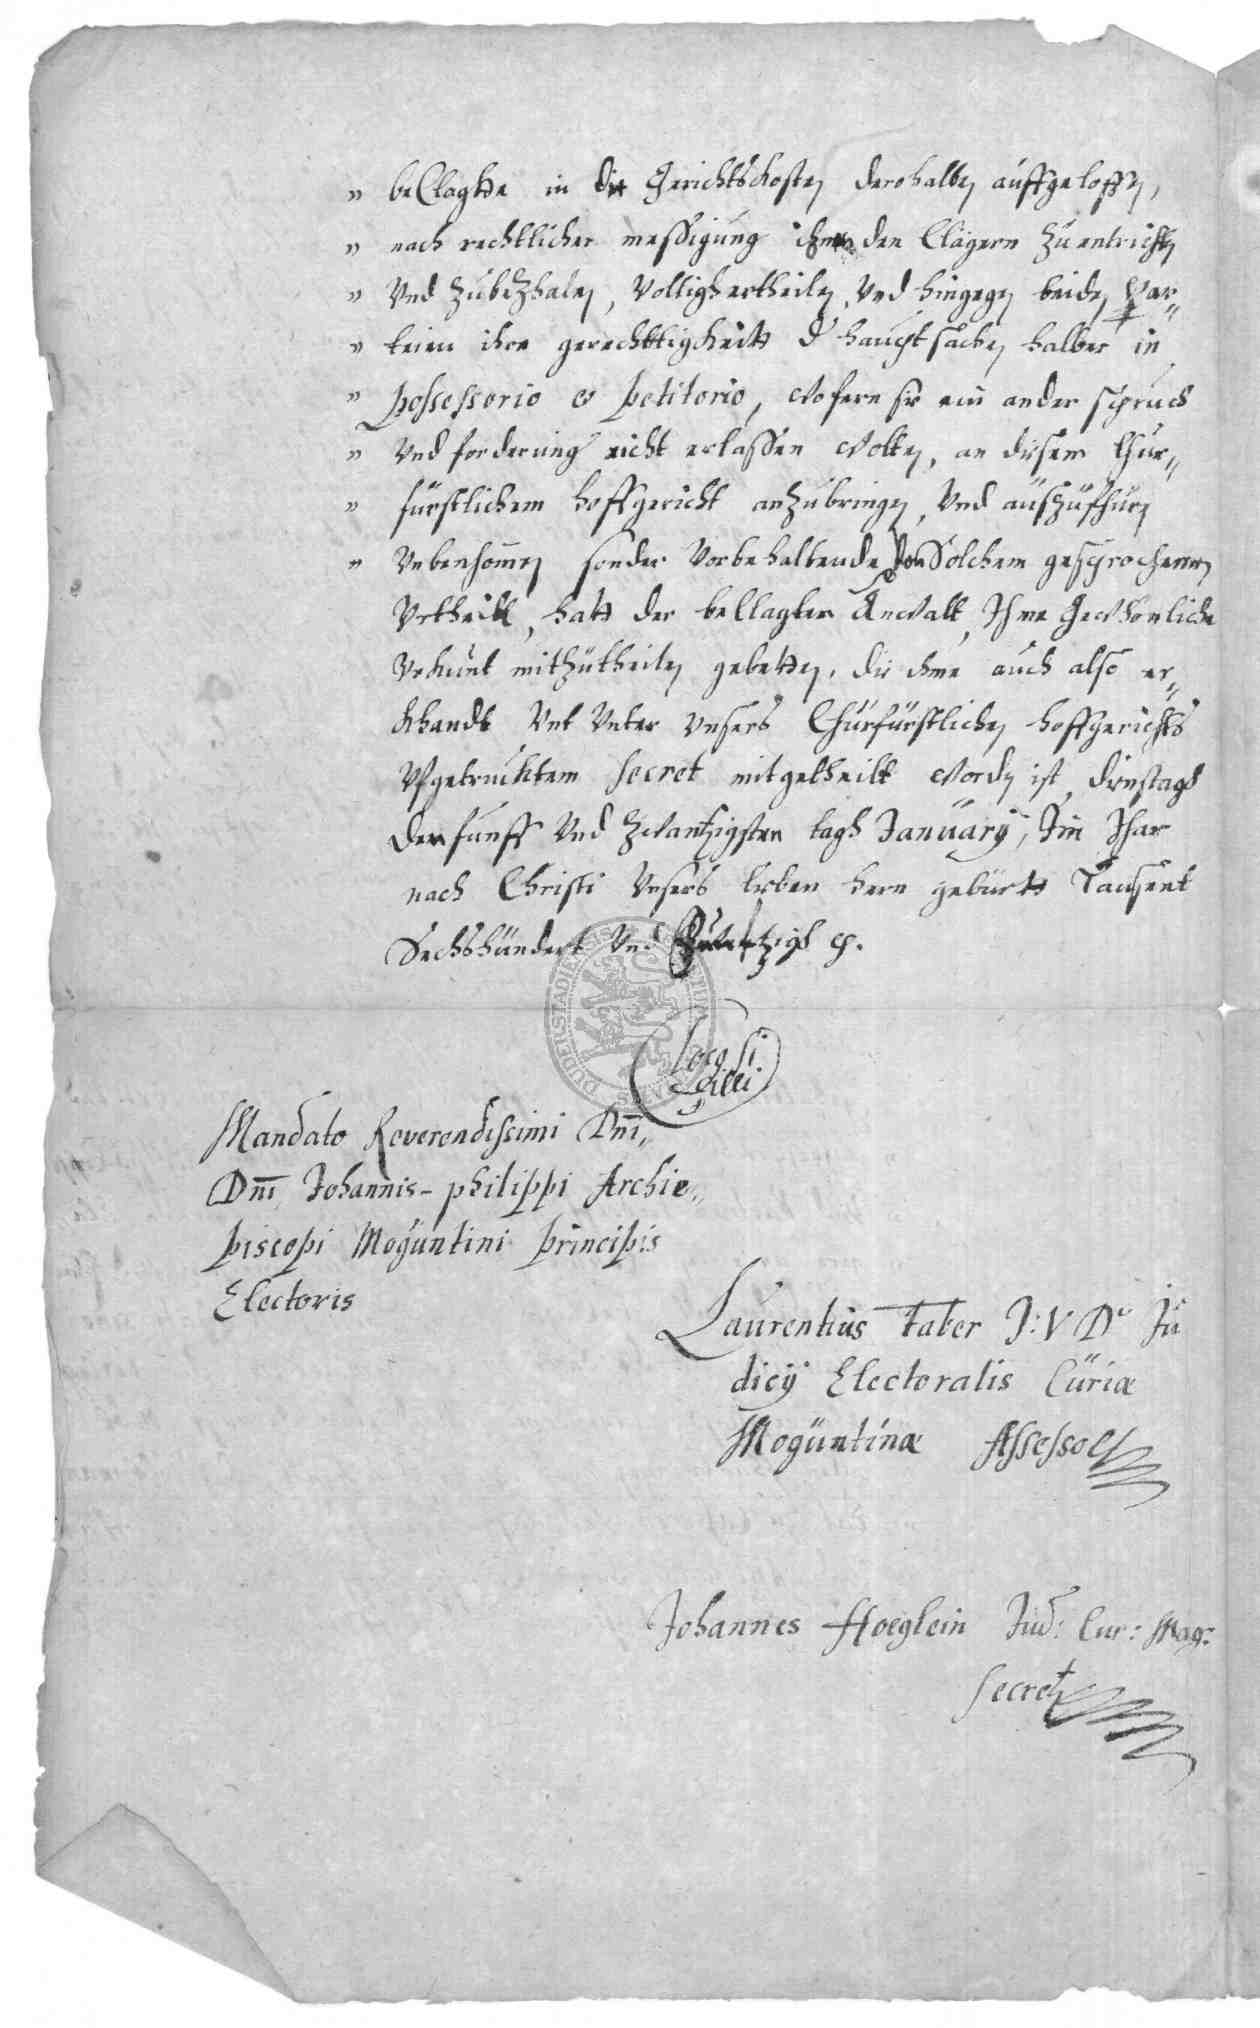 " beClagtte in die Gerichtskosten derohalben auffgeloffen,
" nach rechtlicher messigung ihnen den Clägern zu entrichten
" Vnd zubezhalen, Vellig ertheilen, Vnd hingegen beiden Par„
" teien ihre gerechttigkeitt d haubtsachen halber in
" possessorio et petitorio, wofern sie ein ander spruchs
" Vnd forderung nicht erlassen wolten, an diesem Chur„
" fürstlichem hoffgericht anzubringen, Vnd auszufhüren
" Vnbenhomen sonder Vorbehaltende Von Solchem gesprochenen
Vrtheill, hatt der beklagten Anwalt, Ihme Gewhönliche
Vrkunt mitzutheilen gebetten, die ihme auch also er„
khandt Vnt Vnter Vnsers Churfürstlichen hoffgerichts
Vfgetrucktem Secret mitgetheilt worden ist, dienstags
den funff Vnd Zwantzigsten tagh Januarij, Im Jhar
nach Christi Vnsers lieben hern geburtt Tausent
Sechshundert Vnd
Loco si
gilli
Mandato Reverendissimi Dni„
Dni Johannis-philippi Archie„
piscopi Moguntini principis
Electoris
Laurentius faber J: V Dr Ju
dicij Electoralis Curiæ
Moguntinæ Assessor
Johannes Hoeglein Jud: Cur: Mog:
secret
DUDERSTADIENSIS